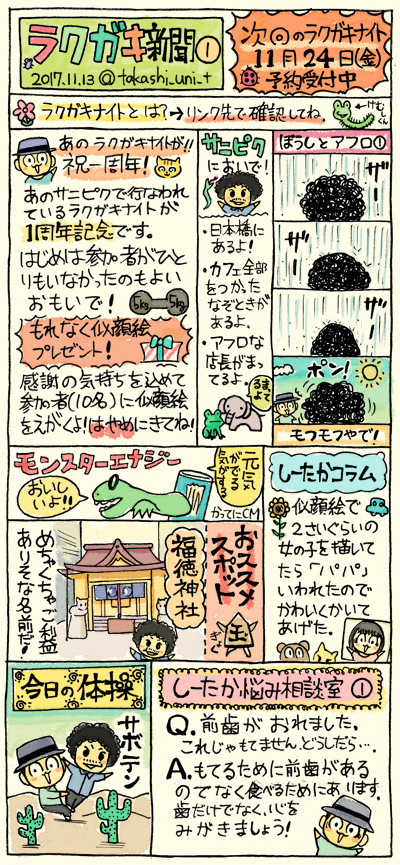 ラクガキ新聞①
2017.11.13 @takashi_uni_t
次回のラクガキナイト
11月24日(金)
予約受付中
ラクガキナイトとは?→リンク先で確認してね
←けむしくん
あのラクガキナイトが!!
祝一周年!
あのサニピクで行なわれ
ているラクガキナイトが
1周年記念です。
はじめは参加者がひと
りもいなかったのもよい
おもいで!
5kg 5kg
もれなく似顔絵
プレゼント!
感謝の気持ちを込めて
参加者(10名)に似顔絵
をえがくよ!はやめにきてね!
サニピク
においで!
・日本橋に
あるよ!
・カフェ全部
をつかった
なぞときが
あるよ。
・アフロな
店長がまっ
てるよ。
まってるよ
ぼうしとアフロ①
ザー
ザー
ザー
ポン!
モフモフやで!
モンスターエナジー
おいしいよ!!
元気
がでる
気がする
かってにCM
めちゃくちゃご利益
ありそな名前だ!
福徳神社
おススメ
スポット
ぎょく
玉
しーたかコラム
似顔絵で
2さいぐらいの
女の子を描いて
たら「パパ」
いわれたので
かわいくかいて
あげた。
今日の体操
サボテン
しーたか悩み相談室①
Q.前歯がおれました。
これじゃもてません。どうしたら…。
A.もてるために前歯がある
のでなく食べるためにあります。
歯だけでなく、心を
みがきましょう!